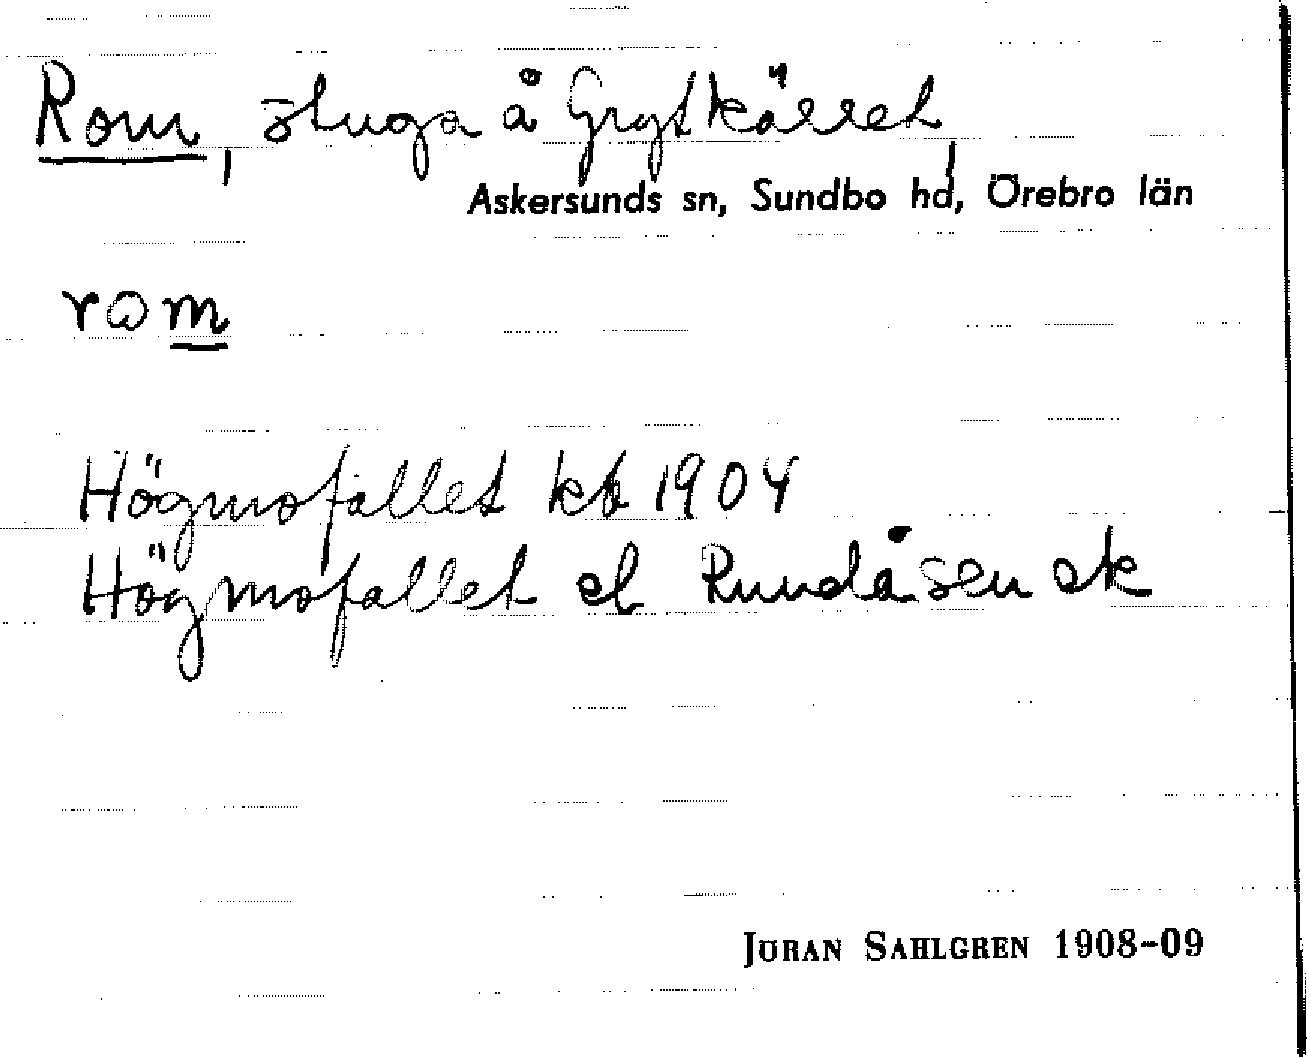 Rom, stuga å Grytkärret,
Askersunds sn, Sundbo hd, Örebro län
rom
Högmofallet kb 1904
Högmofallet el Rundåsen ek
JÖRAN SAHLGREN 1908-09